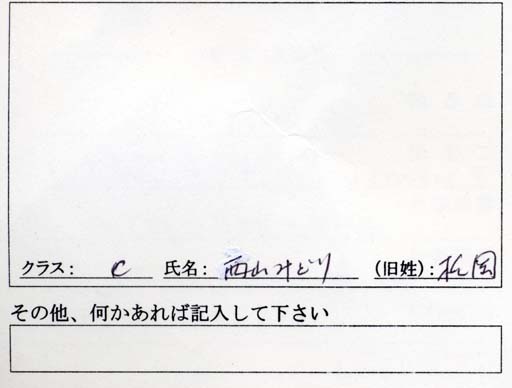 クラス: C 氏名: 西山みどり (旧姓): 松岡
その他、何かあれば記入して下さい